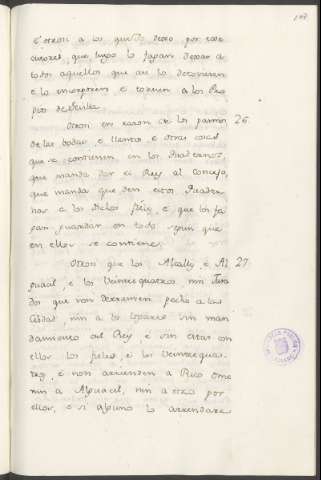 é otrosi a los que lo dexo por este
que luego lo fagan dexar a
todos aquellos que asi lo
é lo é tornen a los Pro
pios de Sevilla.
Otrosi en razon de los paños 26.
de las bodas, é llantos é otras cosas
que se contienen en los Quadernos,
que manda dar el Rey al Concejo,
que manda que den estos Quader
nos a los dichos fieles, é que los fa
gan guardar en todo, segun que
en ellos se contiene.
Otrosi que los Alcalles, é Al 27.
guacil, é los Veintequatros, nin Jura
dos que non derramen pecho a la
Cibdat, nin a los Logares sin man
damiento del Rey, é sin estar con
ellos los fieles, é los Veintequa
tro, é non arrienden a Rico Ome
nin a Alguacil, nin a otro por
ellos, é si alguno lo arrendare